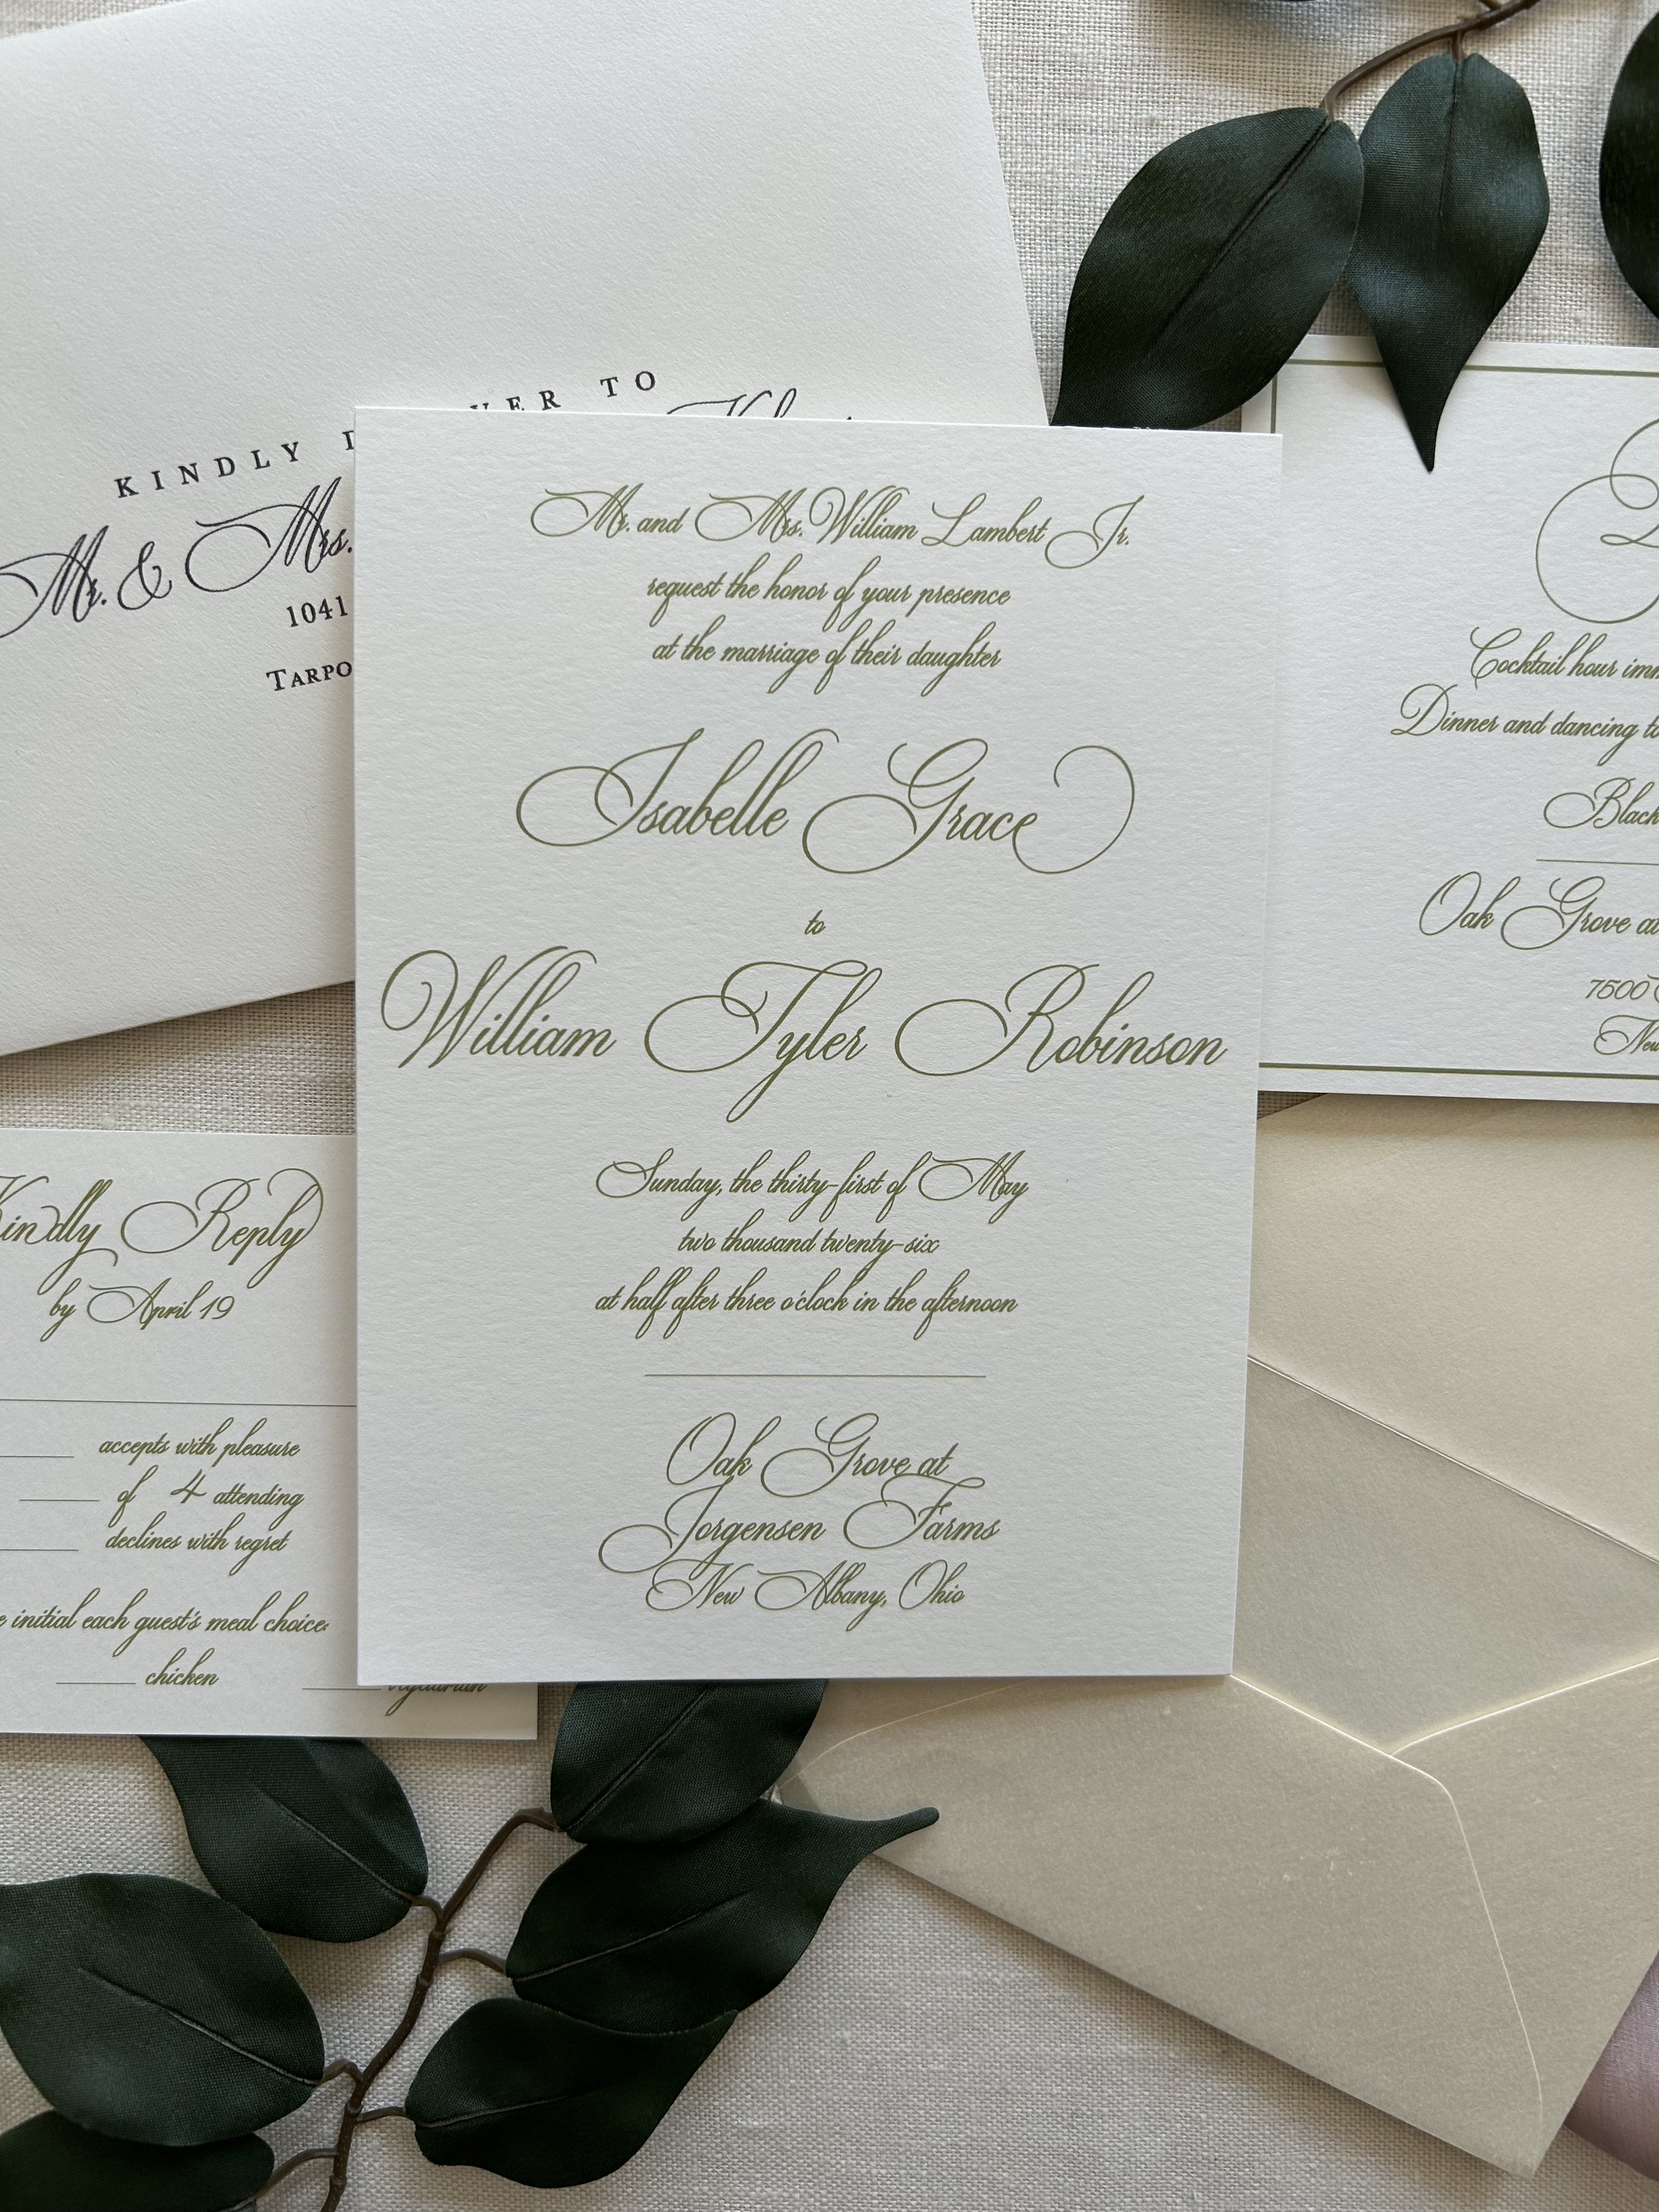 KINDLY TO
Mr. & Mrs.
1041
Mr. and Mrs. William Lambert Jr.
request the honor of your presence
at the marriage of their daughter
Isabelle Grace
to
William Tyler Robinson
Sunday, the thirty-first of May
two thousand twenty-six
at half after three o'clock in the afternoon
Oak Grove at
Jorgensen Farms
New Albany, Ohio
Cocktail hour
Dinner and dancing
Black
Oak Grove at
7500
New
Kindly Reply
by April 19
accepts with pleasure
of 4 attending
declines with regret
initial each guest's meal choice:
chicken
vegetarian